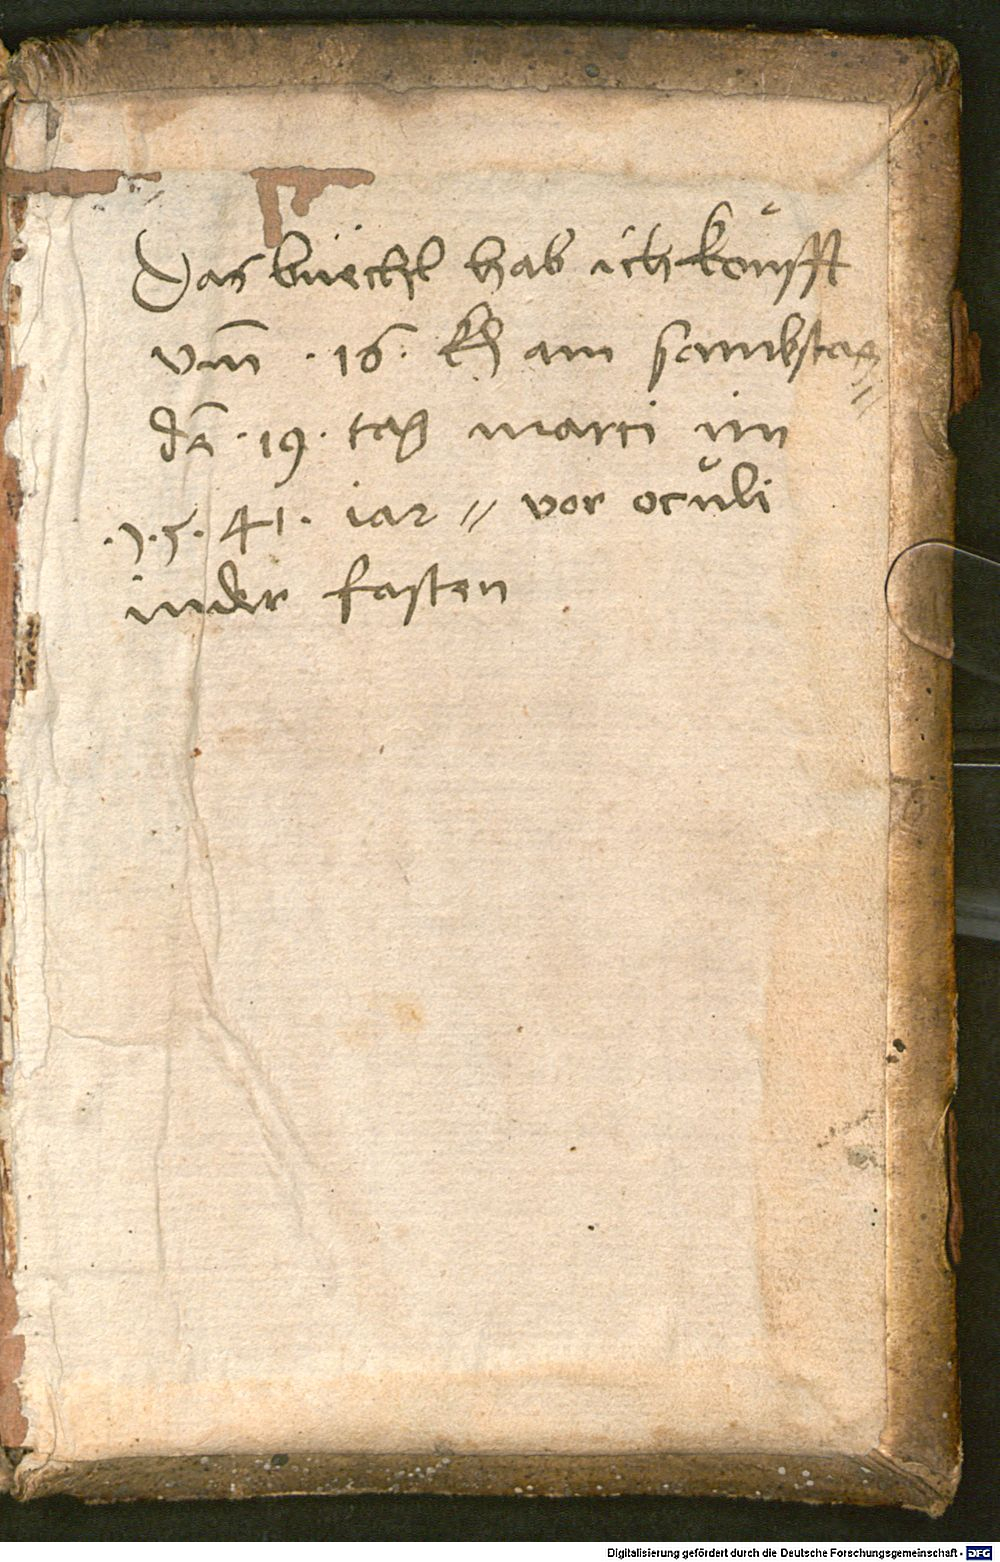 Das büechl hab ich koufft
vm̄ .16. am sambstag
dē .19. tag marci im
.1.5.41. iar // vor oculi
inder fasten
Digitalisierung gefördert durch die Deutsche Forschungsgemeinschaft - DFG